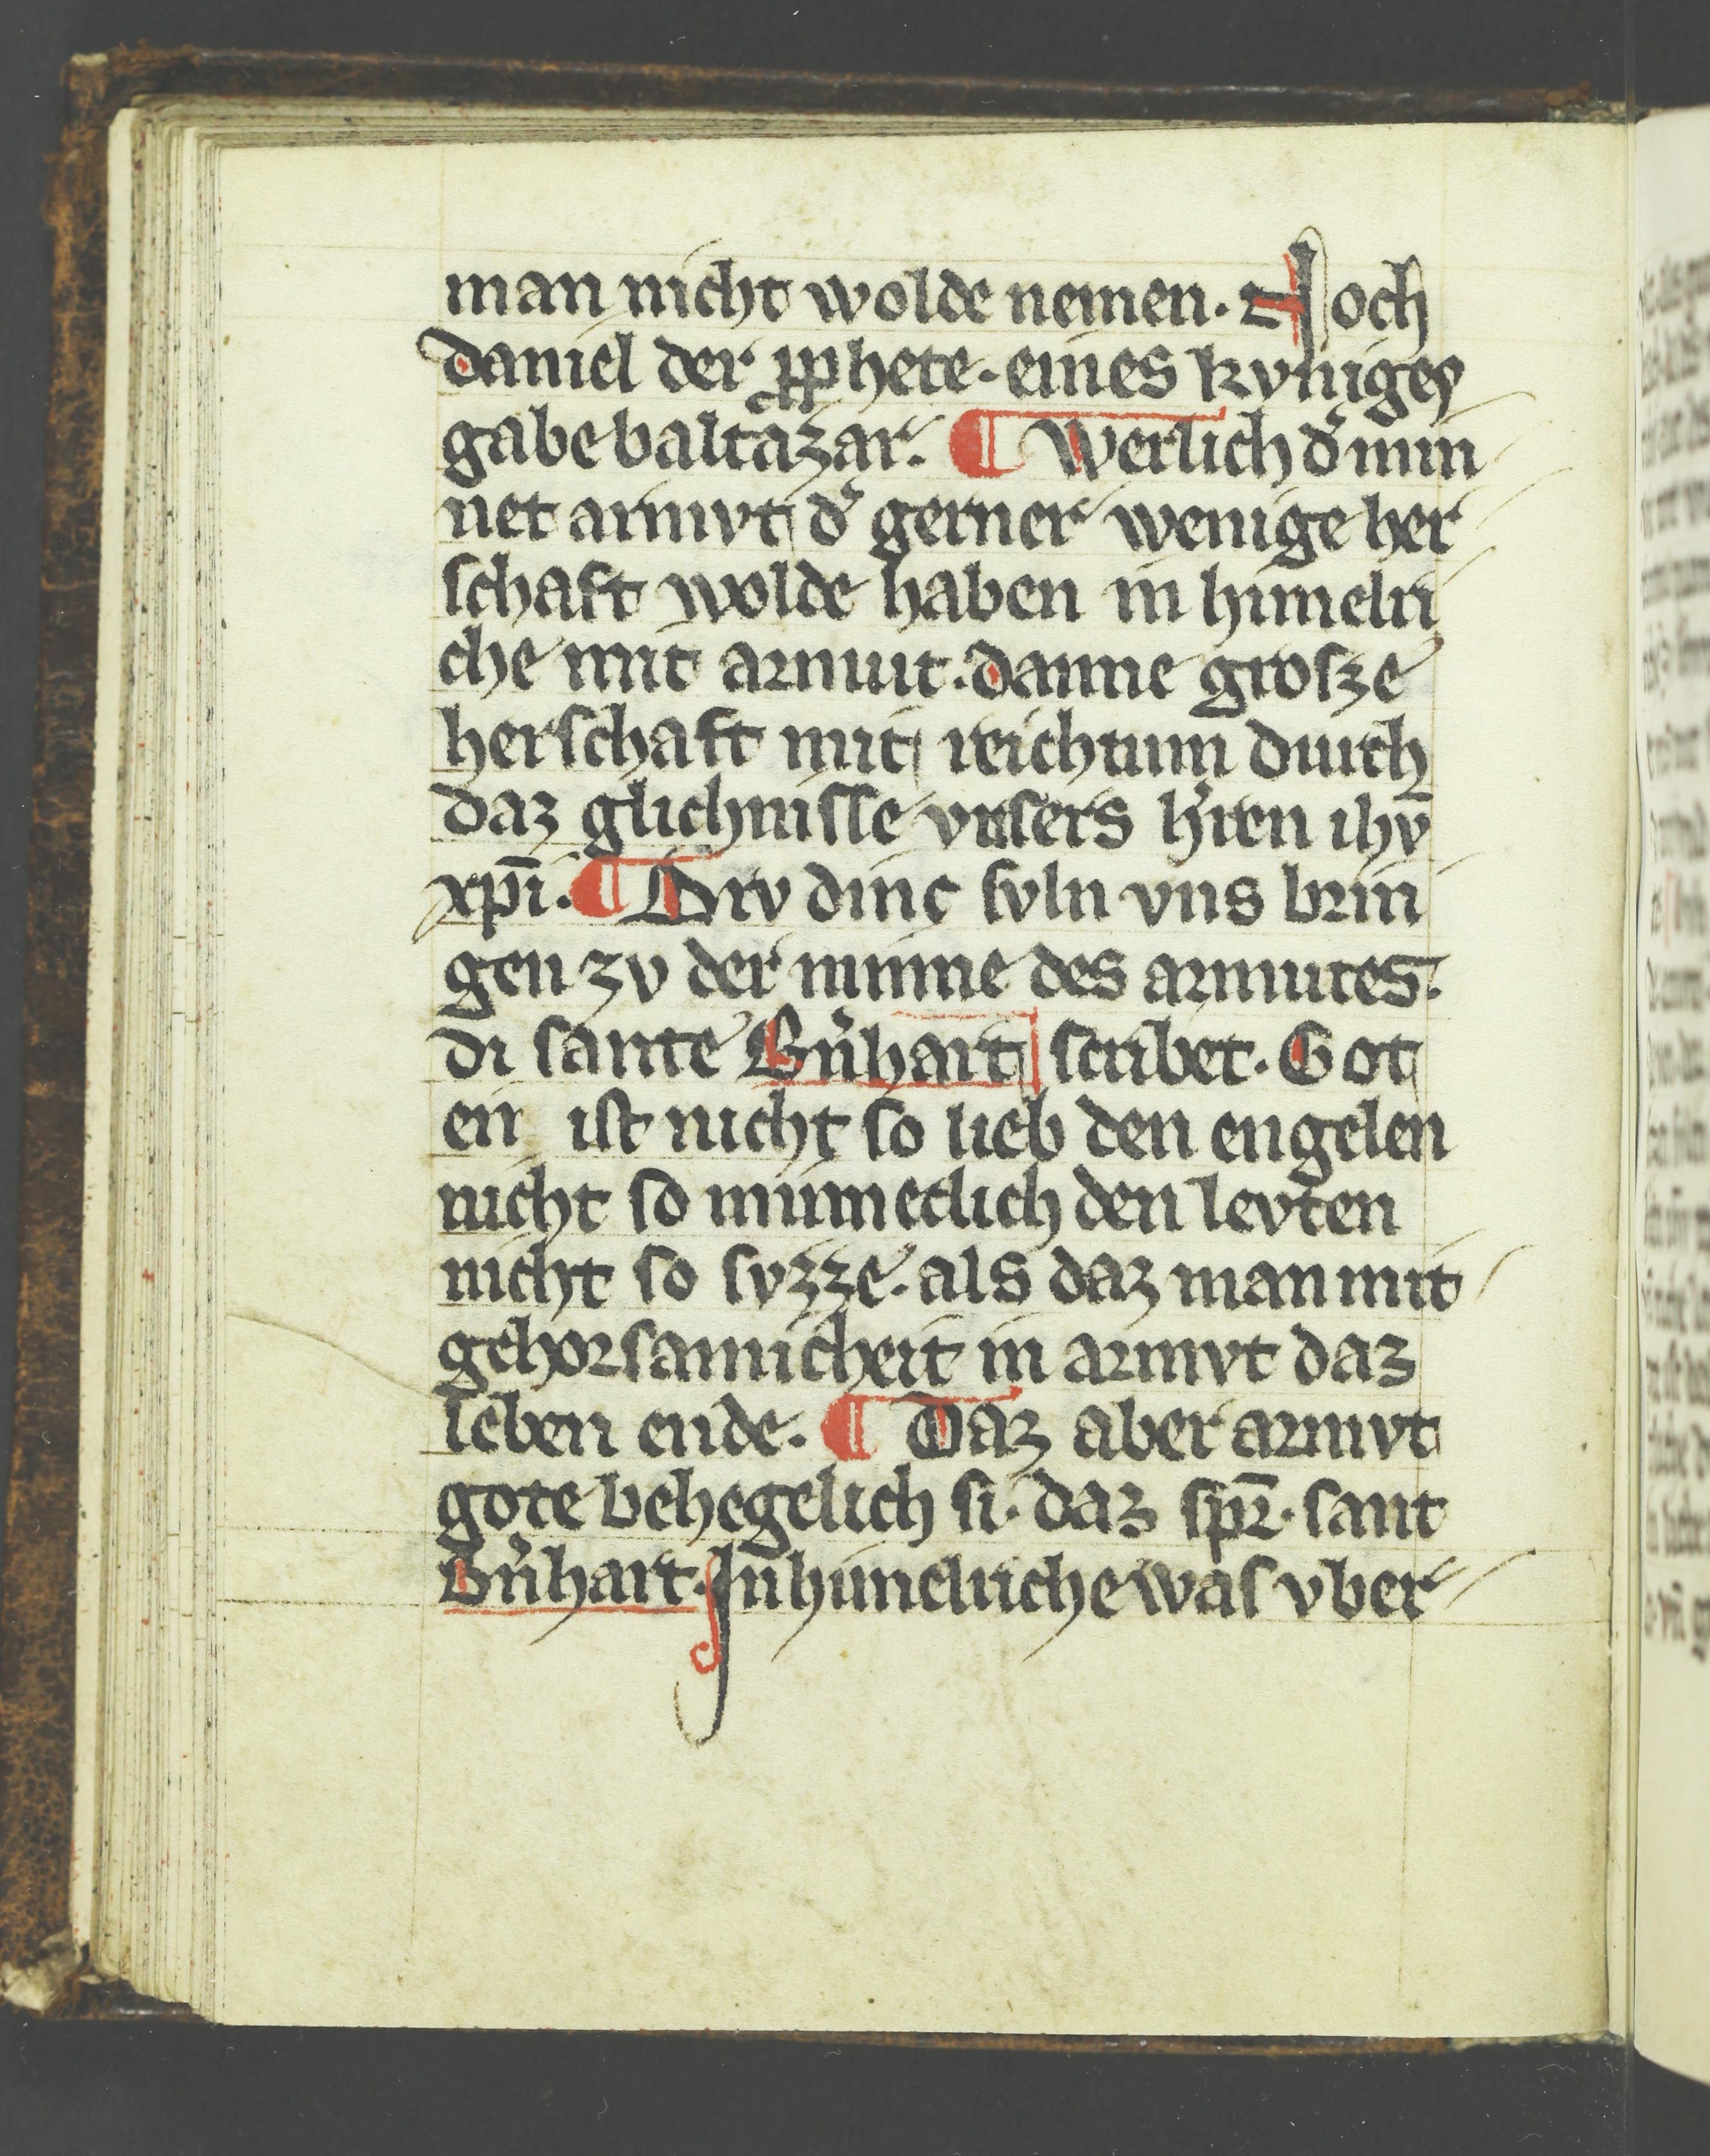 man nicht wolde nemen. Noch
daniel der ꝓphete. eines kvniges
gabe baltazar. ¶ Werlich d᷑ min
net armvt d᷑ gerner wenige her
schaft wolde haben in himelri
che mit armuͥt. danne grosze
herschaft mit reichtum durch
daz glichnisse vnsers h᷑ren ihv̄
xp̄i. ¶ Drv dinc svln vns brin
gen zv der minne des armutes.
di sante B᷑nhart scribet. Got
en ist nicht so lieb den engelen
nicht so minneclich den levten
nicht so svzze. als daz man mit
gehorsamicheit in armvt daz
leben ende. ¶ Daz aber armvt
gote behegelich si. daz spꝛ̄. sant
B᷑nhart. In himelriche was vber